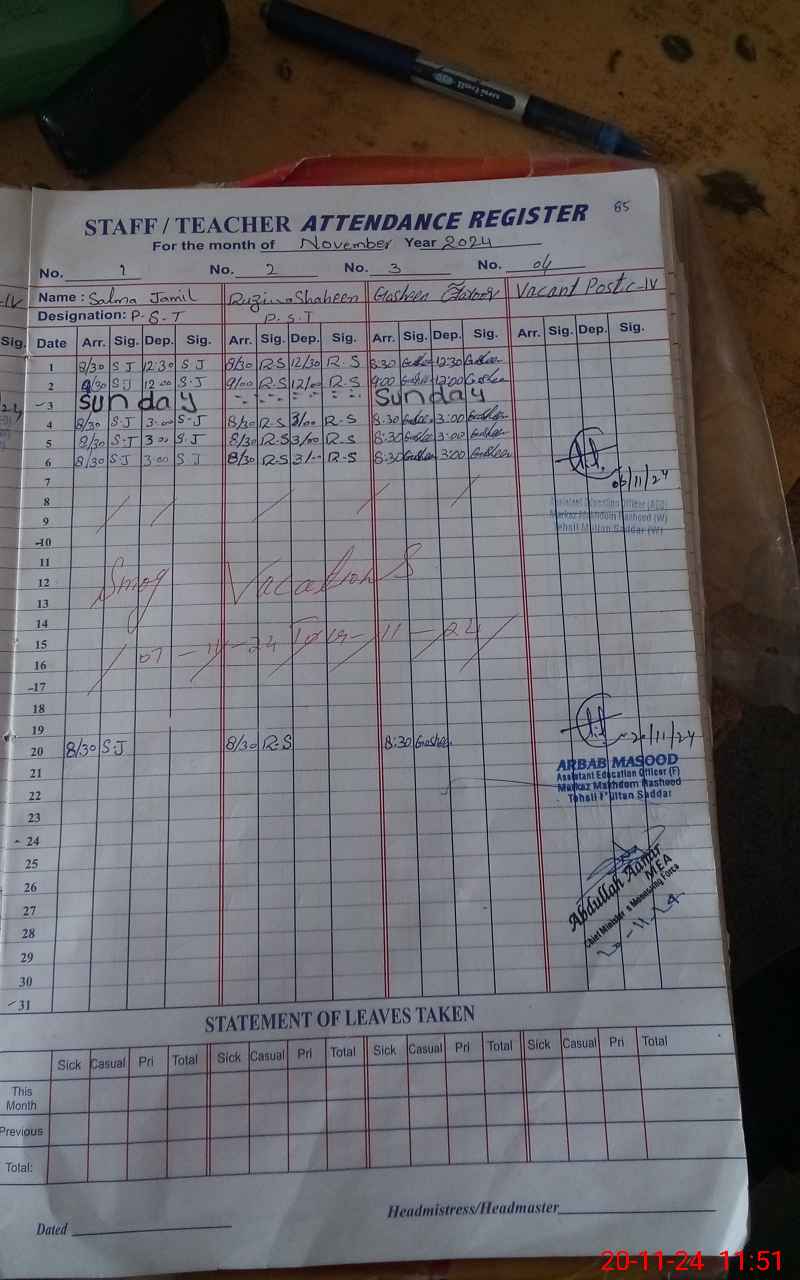 85
STAFF / TEACHER ATTENDANCE REGISTER
For the month of November Year 2024
No. 1 No. 2 No. 3 No. 04
Name : Salma Jamil Ruzina Shaheen Vacant Post C-IV
Designation: P.S.T P.S.T
Sig. Date Arr. Sig. Dep. Sig. Arr. Sig. Dep. Sig. Arr. Sig. Dep. Sig. Arr. Sig. Dep. Sig.
1 8/30 S J 12:30 S J 8/30 R.S 12/30 R.S 8:30 12:30
2 9/30 S J 12 00 S.J 9/00 R.S 12/00 R.S 9:00 12:00
3 Sunday Sunday
4 8/30 S.J 3.00 S.J 8/30 R.S 3/00 R.S 8:30 3:00
5 8/30 S.J 3 00 S.J 8/30 R.S 3/00 R.S 8:30 3:00
6 8/30 S.J 3.00 S J 8/30 R.S 3/00 R.S 8:30 3:00
06/11/24
7
8
Assistant Education Officer
Markaz Makhdom Rasheed (W)
9
Tehsil Multan Saddar (W)
10
11
12 Smog Vacations
13
14
15 07-11-24 To 19-11-24
16
17
18
19
20 8/30 S.J 8/30 R.S 8:30
20/11/24
21
ARBAB MASOOD
Assistant Education Officer (F)
22
Markaz Makhdom Rasheed
Tehsil Multan Saddar
23
24
25
26
Abdullah Aamir
MEA
27
Chief Minister's Monitoring Force
28
29
30
31
STATEMENT OF LEAVES TAKEN
Sick Casual Pri Total Sick Casual Pri Total Sick Casual Pri Total Sick Casual Pri Total
This
Month
Previous
Total:
Headmistress/Headmaster
Dated
20-11-24 11:51